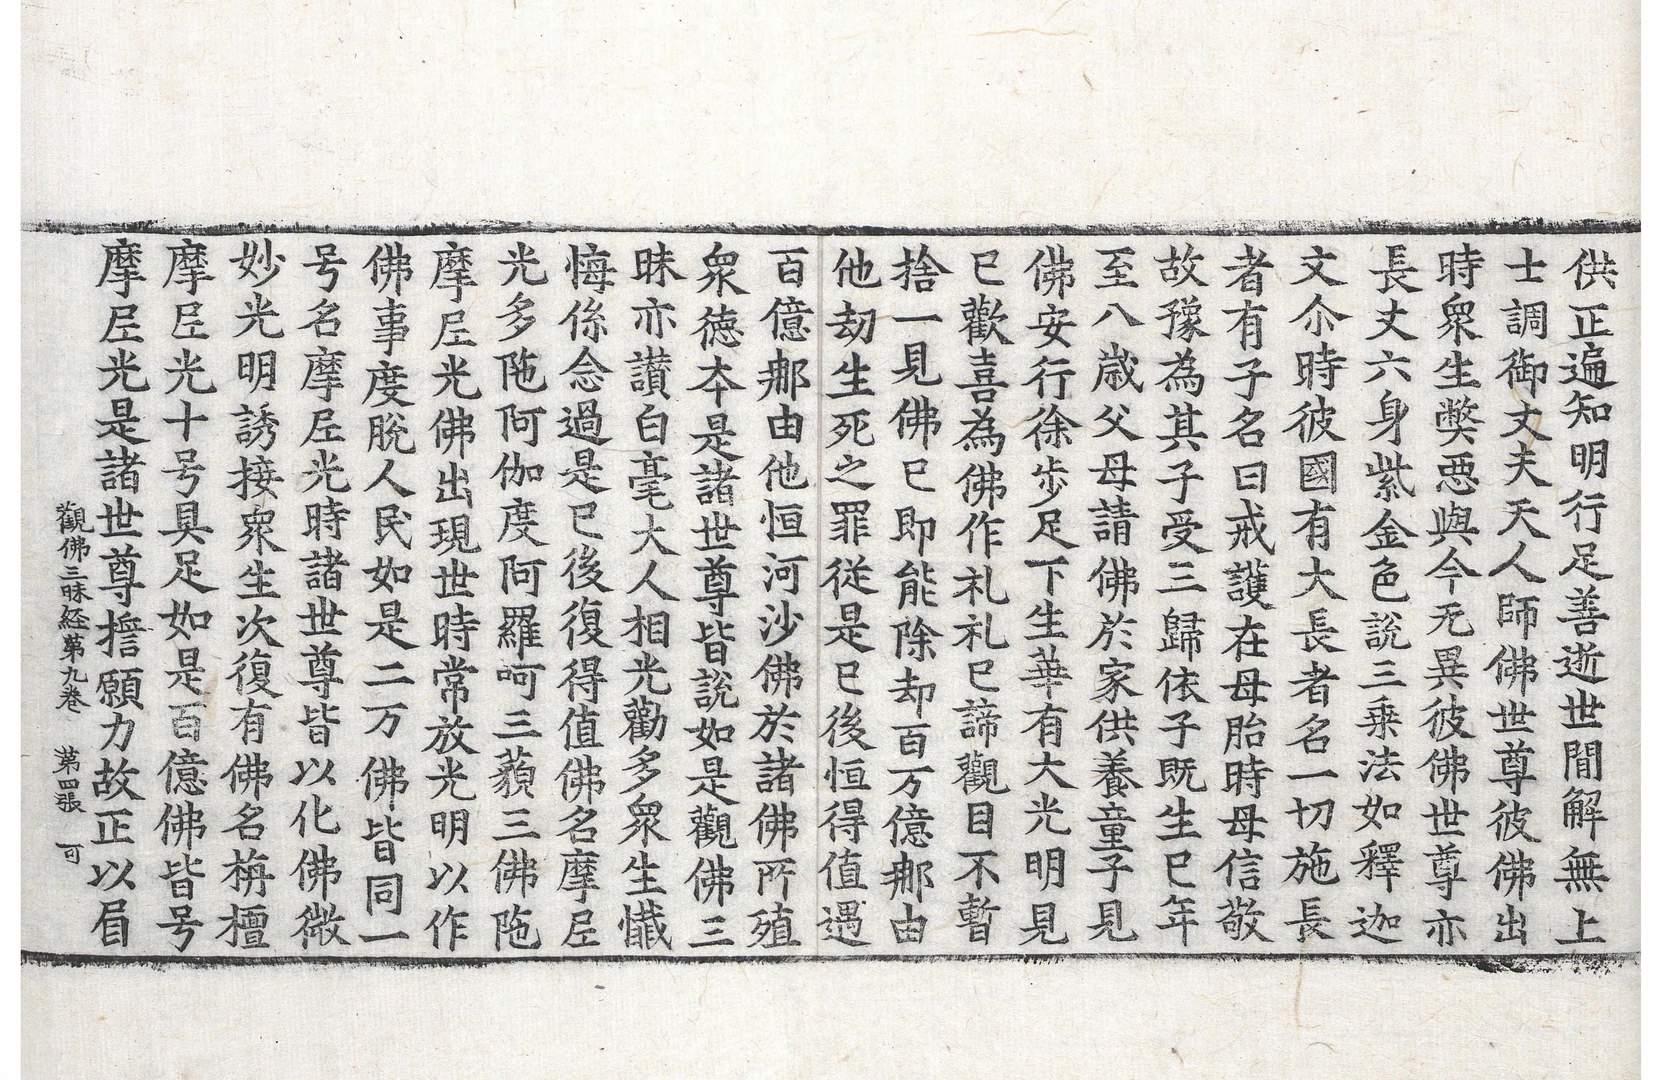 供正遍知明行足善逝世間解無上
士調御丈夫天人師佛世尊彼佛出
時衆生弊惡與今无異彼佛世尊亦
長丈六身紫金色說三乘法如釋迦
文尒時彼國有大長者名一切施長
者有子名曰戒護在母胎時母信敬
故豫為其子受三歸依子既生已年
至八歲父母請佛於家供養童子見
佛安行徐步足下生華有大光明見
已歡喜為佛作礼礼已諦觀目不暫
捨一見佛已即能除却百万億那由
他劫生死之罪從是已後恒得值遇
百億那由他恒河沙佛於諸佛所殖
衆德夲是諸世尊皆說如是觀佛三
昧亦讃白毫大人相光勸多衆生懺
悔係念過是已後復得值佛名摩𡰱
光多陁阿伽度阿羅呵三藐三佛陁
摩𡰱光佛出現世時常放光明以作
佛事度脫人民如是二万佛皆同一
号名摩𡰱光時諸世尊皆以化佛微
妙光明誘接衆生次復有佛名栴檀
摩𡰱光十号具足如是百億佛皆号
摩𡰱光是諸世尊擔願力故正以眉
觀佛三昧経第九卷 第四張 可